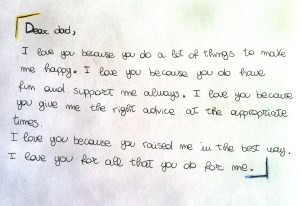 Dear dad,
I love you because you do a lot of things to make
me happy. I love you because you do have
fun and support me always. I love you because
you give me the right advice at the appropriate
times.
I love you because you raised me in the best way.
I love you for all that you do for me.